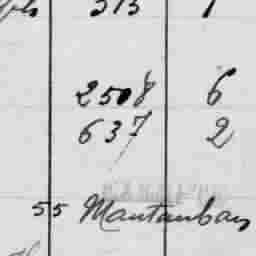 313 1
2508 6
637 2
55 Mantanbay